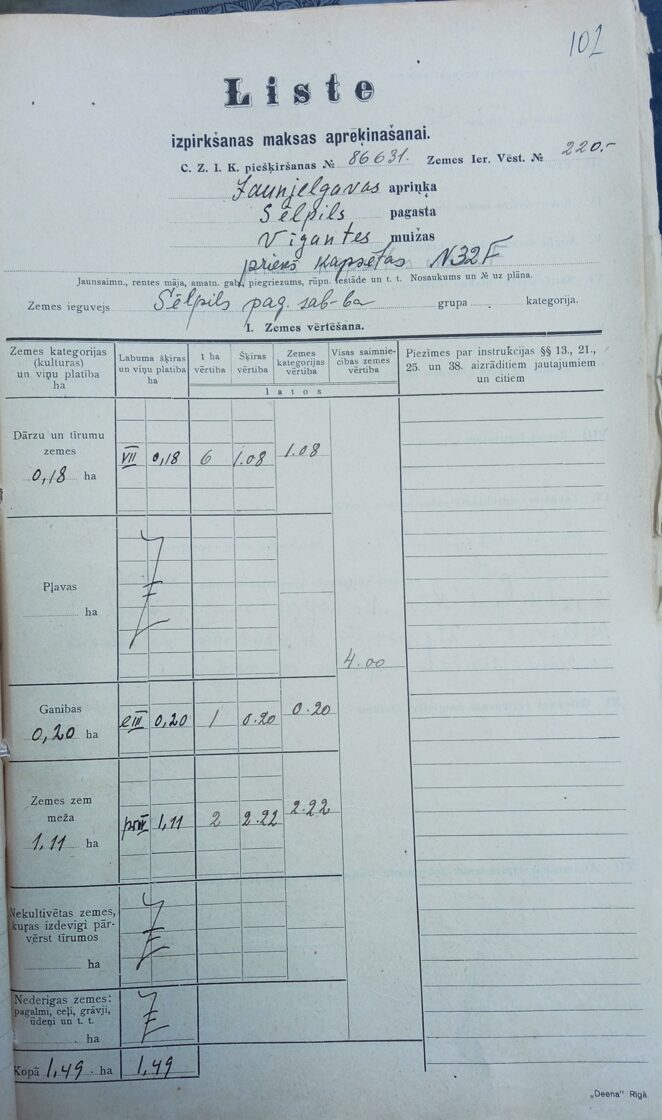 102
Liste
izpirkšanas maksas apreķinašanai.
C. Z. I. K. piešķiršanas № 86631. Zemes Ier. Vēst. № 220.-
Jaunjelgavas apriņķa
Sēlpils pagasta
Vīgantes muižas
priekš kapsētas N32F
Jaunsaimn., rentes māja, amatn. gab., piegriezums, rūpn. iestāde un t. t. Nosaukums un № uz plāna.
Zemes ieguvejs Sēlpils pag. sab-ba grupa . kategorija.
I. Zemes vērtēšana.
Zemes kategorijas (kulturas) un viņu platība ha
Labuma šķiras un viņu platība ha
1 ha vērtība
Šķiras vērtība
Zemes kategorijas vērtība
Visas saimniecības zemes vērtība
Piezīmes par instrukcijas §§ 13., 21., 25. un 38. aizrādītiem jautajumiem un citiem
latos
Dārzu un tīrumu zemes
0,18 ha VII 0,18 6 1.08 1.08
Pļavas
ha
4.00
Ganibas
0,20 ha III 0,20 1 0.20 0.20
Zemes zem meža
1,11 ha 1,11 2 2.22 2.22
Nekultivētas zemes, kuŗas izdevigi pārvērst tīrumos
ha
Nederigas zemes: pagalmi, ceļi, grāvji, ūdeņi un t. t.
ha
Kopā 1,49 ha 1,49
„Deena" Rīgā